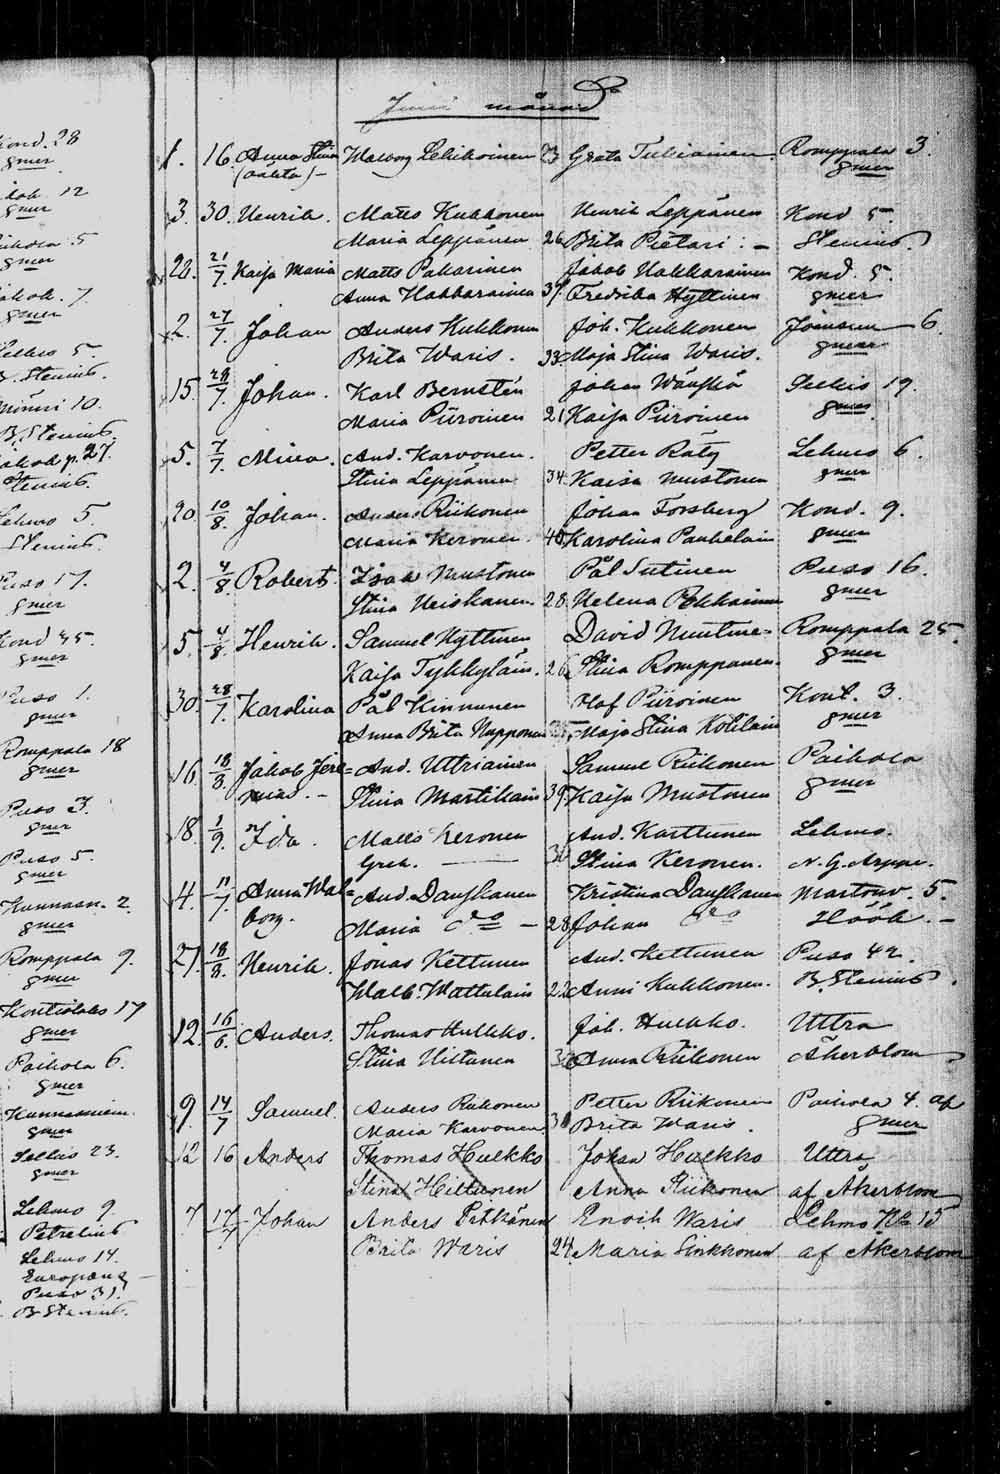 Juni månad
Kond. 28
gmer
Jakob 12
gmer
Paihola 5
gmer
Jakob. 7.
gmer
Selkis 5.
B. Stenius.
Minni 10.
B. Stenius.
Jakob p. 27.
Stenius.
Lehmo 5.
Stenius.
Puso 17.
gmer
Kond 45.
gmer
Puso 1.
gmer
Romppala 18
gmer
Puso 3.
gmer
Puso 5.
gmer
Kunnasn. 2.
gmer
Romppala 9.
gmer
Kontiolaks 17
gmer
Paihola 6.
gmer
Kunnasniemi
gmer
Selkis 23.
gmer
Lehmo 9.
Petrelius
Lehmo 14.
Europaeus
Puso 31.
B Stenius.
1. 16 Anna Stina Walborg Lehikoinen 23 Greta Tukiainen. Romppala 3.
(oäkta) – gmer
3. 30. Henrik. Matts Kukkonen Henrik Leppänen Kond 5.
Maria Leppänen 26 Brita Pietari. – Stenius.
28. 21/7. Kaija Maria Matts Pakarinen Jakob Hakkarainen Kond. 5.
Anna Hakkarainen 37. Fredrika Hyttinen gmer
2. 27/7. Johan Anders Kukkonen Joh. Kukkonen Joensuu 6.
Brita Waris. 33. Maja Stina Waris. gmer
15. 29/7. Johan. Karl Bernstén Johan Wänskä Selkis 19.
Maria Piiroinen 21 Kaija Piiroinen gmer
5. 7/7. Mina. And. Karvonen. Petter Räty Lehmo 6.
Stina Leppänen 34. Kaisa Mustonen gmer
20. 10/8. Johan. Anders Riikonen Johan Forsberg Kond. 9.
Maria Keronen. 40. Karolina Pauhelain gmer
2. 4/8. Robert. Isak Mustonen Pål Sutinen Puso 16.
Stina Heiskanen. 28. Helena gmer
5. 4/8. Henrik. Samuel Hyttinen David Nuutine= Romppala 25.
Kaisa Tykkyläin. 26. Stina Romppanen. gmer
30. 28/7. Karolina Pål Kinnunen Olof Piiroinen Kont. 3.
Anna Brita Nupponen 35. Maja Stina Kotilain gmer
16. 18/8. Jakob Jere= And. Uttriainen Samuel Riikonen Paihola
mias. – Stina Martikain 39. Kaisa Mustonen gmer
18. 1/9. Ida. Matts Keronen And. Karttunen Lehmo.
Greta. — 30 Stina Keronen. N. G. Arppe.
4. 11/7. Anna Wal= And. Danskanen Kristina Danskanen Martonv. 5.
borg. Maria d:o – 28 Johan d:o Höök. –
21. 18/8. Henrik. Jonas Kettunen And. Kettunen Puso 42.
Walb. Wattulain 22 Anni Kukkonen. B. Stenius.
12. 16/6. Anders. Thomas Hulkko. Joh. Hulkko. Uttra
Stina Hiltunen 30 Anna Riikonen Åkerblom
9. 14/7 Samuel. Anders Riikonen Petter Riikonen Paihola 4. af
Maria Karvonen 30 Brita Waris. gmer
12 16 Anders Thomas Hulkko Johan Hulkko Uttra
Stina Hiltunen Anna Riikonen af Åkerblom
7 17/7 Johan Anders Pitkänen Enoch Waris Lehmo No 15
Brita Waris 24. Maria Sinkkonen af Åkerblom